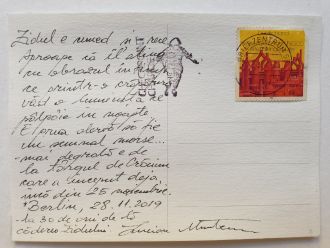 Zidul e umed și rece
Aproape că îl ating
cu obrazul în timp
ce printr-o crăpătură
văd o luminiță ce
pâlpâie în noapte.
E prea alertă să fie
un semnal morse...
mai degrabă e de
la târgul de Crăciun
care a început deja,
încă din 25 noiembrie.
Berlin, 28.11.2019
la 30 de ani de la
căderea Zidului
BRIEFZENTRUM